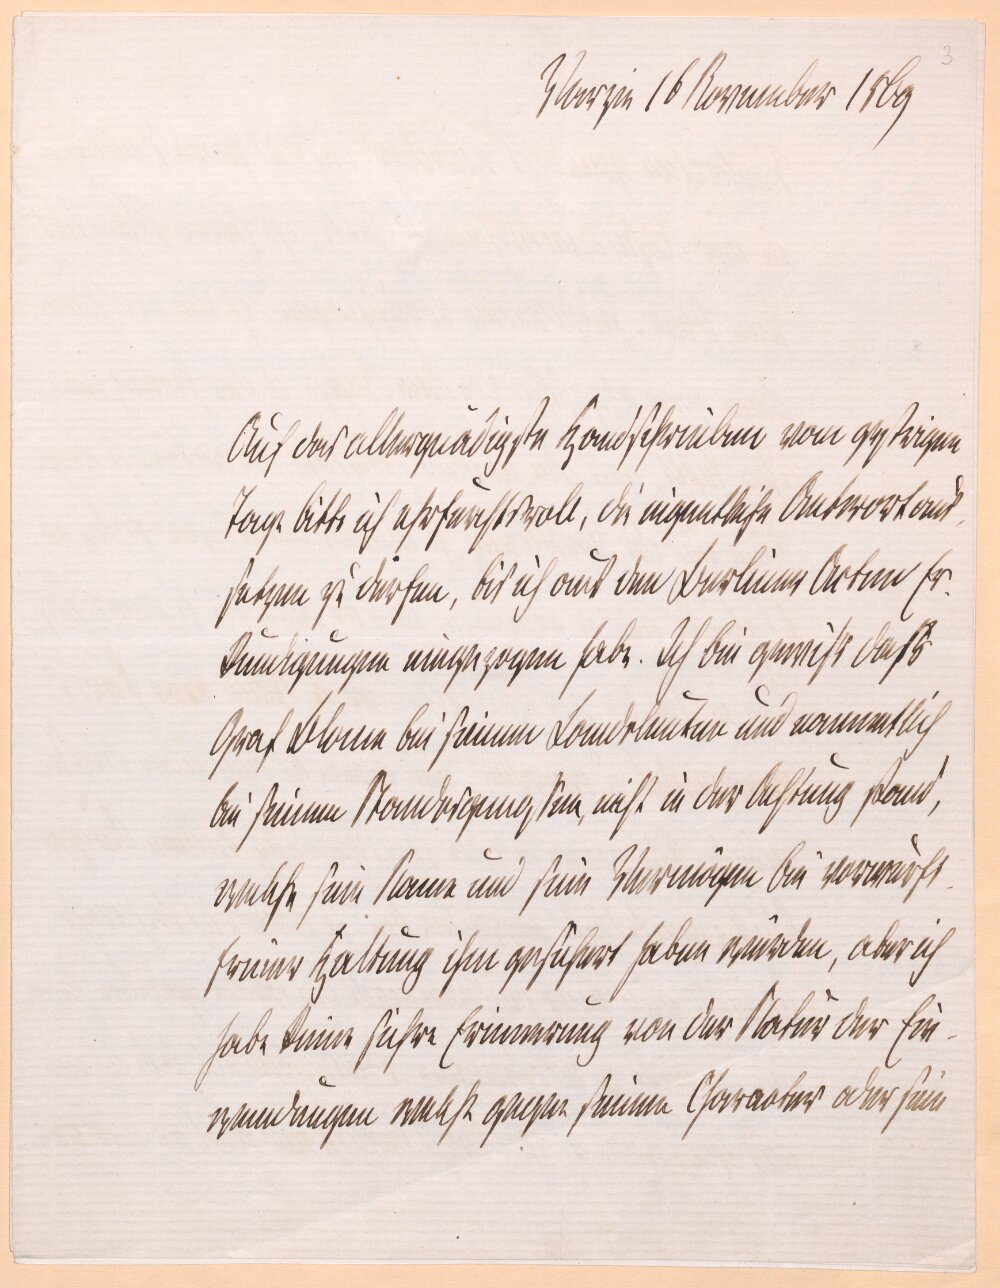 3
Varzin 16 November 1869
Auf das allergnädigste Handschreiben vom gestrigen
Tage bitte ich ehrfurchtsvoll, die eigentliche Antwort aus-
setzen zu dürfen, bis ich aus den Berliner Acten Er-
kundigungen eingezogen habe. Ich bin gewiß daß
Graf Blome bei seinen Landsleuten und namentlich
bei seinen Standesgenossen, nicht in der Achtung stand,
welche sein Name und sein Vermögen bei vorwurfs-
freier Haltung ihm gesichert haben würden, aber ich
habe keine sichre Erinnerung von der Natur der Ein-
wendungen welche gegen seinen Character oder sein